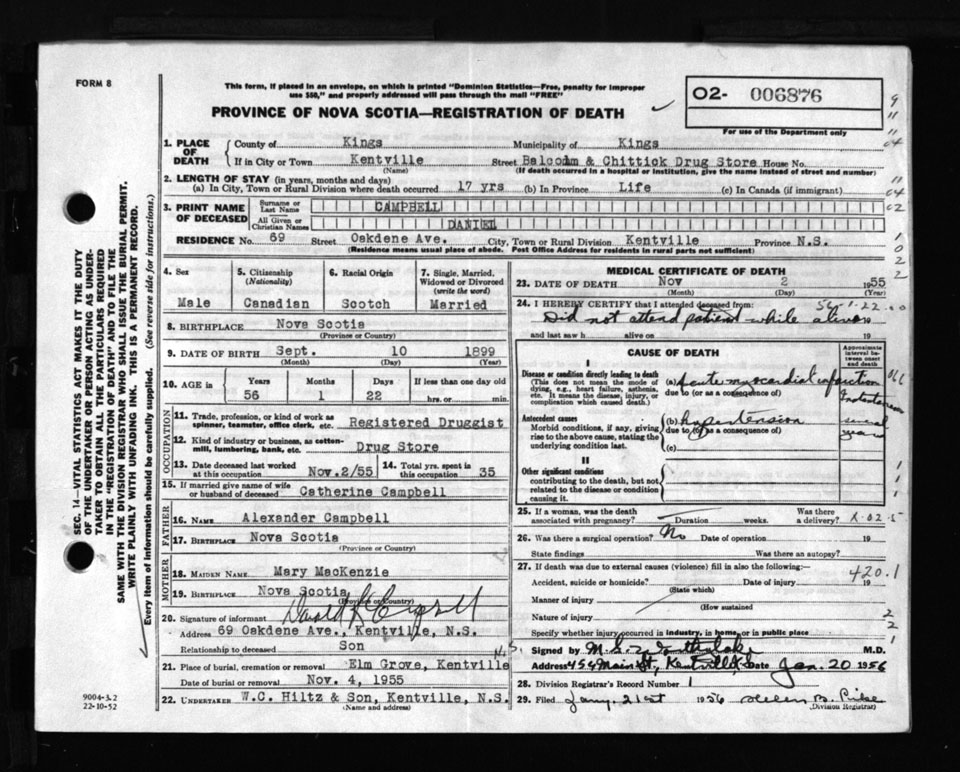 FORM 8
This form, if placed in an envelope, on which is printed "Dominion Statistics—Free, penalty for improper
use $50," and properly addressed will pass through the mail "FREE"
PROVINCE OF NOVA SCOTIA—REGISTRATION OF DEATH
O2- 006876
For use of the Department only
1. PLACE OF DEATH
County of Kings Municipality of Kings
If in City or Town Kentville Street Balcom & Chittick Drug Store House No.
(Name) (If death occurred in a hospital or institution, give the name instead of street and number)
2. LENGTH OF STAY (in years, months and days)
(a) In City, Town or Rural Division where death occurred 17 yrs (b) In Province Life (c) In Canada (if immigrant)
3. PRINT NAME OF DECEASED
Surname or Last Name CAMPBELL
All Given or Christian Names DANIEL
RESIDENCE No. 69 Street Oakdene Ave. City, Town or Rural Division Kentville Province N.S.
(Residence means usual place of abode. Post Office Address for residents in rural parts not sufficient)
SEC. 14—VITAL STATISTICS ACT MAKES IT THE DUTY
OF THE UNDERTAKER OR PERSON ACTING AS UNDER-
TAKER TO OBTAIN ALL THE PARTICULARS REQUIRED
IN THE "REGISTRATION OF DEATH" AND TO FILE THE
SAME WITH THE DIVISION REGISTRAR WHO SHALL ISSUE THE BURIAL PERMIT.
WRITE PLAINLY WITH UNFADING INK. THIS IS A PERMANENT RECORD.
Every item of information should be carefully supplied. (See reverse side for instructions.)
4. Sex
Male
5. Citizenship
(Nationality)
Canadian
6. Racial Origin
Scotch
7. Single, Married,
Widowed or Divorced
(write the word)
Married
8. BIRTHPLACE Nova Scotia
(Province or Country)
9. DATE OF BIRTH Sept. 10 1899
(Month) (Day) (Year)
10. AGE in
Years Months Days If less than one day old
56 1 22 hrs. or min.
OCCUPATION
11. Trade, profession, or kind of work as
spinner, teamster, office clerk, etc. Registered Druggist
12. Kind of industry or business, as cotton-
mill, lumbering, bank, etc. Drug Store
13. Date deceased last worked
at this occupation Nov.2/55
14. Total yrs. spent in
this occupation 35
15. If married give name of wife
or husband of deceased Catherine Campbell
FATHER
16. NAME Alexander Campbell
17. BIRTHPLACE Nova Scotia
(Province or Country)
MOTHER
18. MAIDEN NAME Mary MacKenzie
19. BIRTHPLACE Nova Scotia
(Province or Country)
20. Signature of informant
Address 69 Oakdene Ave., Kentville, N.S.
Relationship to deceased Son
21. Place of burial, cremation or removal Elm Grove, Kentville N.S.
Date of burial or removal Nov. 4, 1955
22. UNDERTAKER W.C. Hiltz & Son, Kentville, N.S.
(Name and address)
9004-3.2
22-10-52
MEDICAL CERTIFICATE OF DEATH
23. DATE OF DEATH Nov 2 1955
(Month) (Day) (Year)
24. I HEREBY CERTIFY that I attended deceased from:
Did not attend patient while alive 19
and last saw h alive on 19
CAUSE OF DEATH
Approximate
interval be-
tween onset
and death
I
Disease or condition directly leading to death
(This does not mean the mode of
dying, e.g., heart failure, asthenia,
etc. It means the disease, injury, or
complication which caused death.)
(a) Acute myocardial infarction
due to (or as a consequence of)
Antecedent causes
Morbid conditions, if any, giving
rise to the above cause, stating the
underlying condition last.
(b) hypertension several years
due to (or as a consequence of)
(c)
II
Other significant conditions
contributing to the death, but not
related to the disease or condition
causing it.
25. If a woman, was the death
associated with pregnancy? Duration weeks. Was there
a delivery?
26. Was there a surgical operation? No Date of operation 19
State findings Was there an autopsy?
27. If death was due to external causes (violence) fill in also the following:—
Accident, suicide or homicide? Date of injury 19
(State which)
420.1
Manner of injury
(How sustained
Nature of injury
Specify whether injury occurred in industry, in home, or in public place
Signed by M.D.
Address 454 Main St, Kentville Date Jan. 20 1956
28. Division Registrar's Record Number 1
29. Filed Jany. 21st 1956
(Division Registrar)